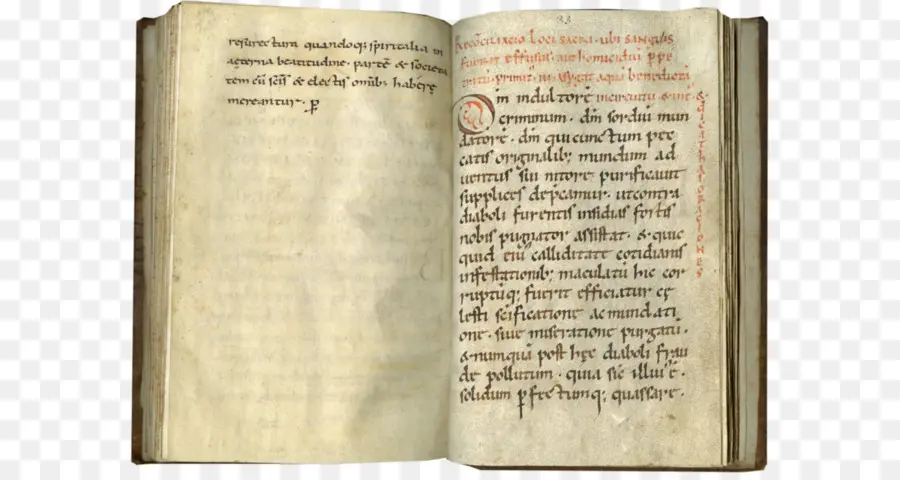 resurrectura quandoq; spiritalia in
aeterna beatitudine. partē & societa
tem cū scīs & electis omīb; habere
mereantur. ꝑ
33
Reconciliatio loci sacri. ubi sanguis
fuerit effusus. aut homicidiū ꝑpe
primit
aqua benedicta
dm indultorē &
criminum. dm̄ sordiū mun
datorē. dm̄ qui cunctum pec
catis originalib; mundum ad
uentus sui nitore purificauit
supplices dep̄camur. ut contra
diaboli furentis insidias fortis
nobis pugnator assistat. & quic
quid eius calliditate cotidianis
infestationib; maculatū hic cor
ruptūq; fuerit efficiatur cę
lesti scificatione ac mundati
one. siue miseratione purgatū.
& numquā post hęc diaboli frau
de pollutum. quia sic illui'ē.
solidum ꝑfectumq; quassare.
& dicat has orationes